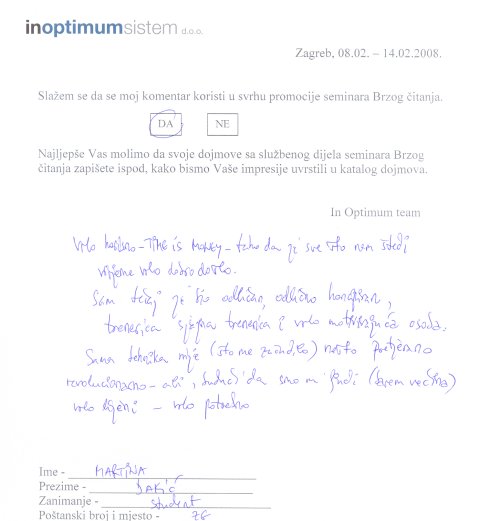 inoptimumsistem d.o.o.
Zagreb, 08.02. – 14.02.2008.
Slažem se da se moj komentar koristi u svrhu promocije seminara Brzog čitanja.
DA NE
Najljepše Vas molimo da svoje dojmove sa službenog dijela seminara Brzog
čitanja zapišete ispod, kako bismo Vaše impresije uvrstili u katalog dojmova.
In Optimum team
Vrlo korisno – TIME IS MONEY – tako da je sve što nam štedi
vrijeme vrlo dobrodošlo.
Sam tečaj je bio odlično, odlično koncipiran,
trenerica sjajna trenerica i vrlo motivirajuća osoba.
Sama tehnika nije (što me začudilo) nešto pretjerano
revolucionarno – ali, budući da smo mi ljudi (barem većina)
vrlo lijeni – vrlo potrebno
Ime - MARTINA
Prezime - DAKIĆ
Zanimanje - student
Poštanski broj i mjesto - ZG